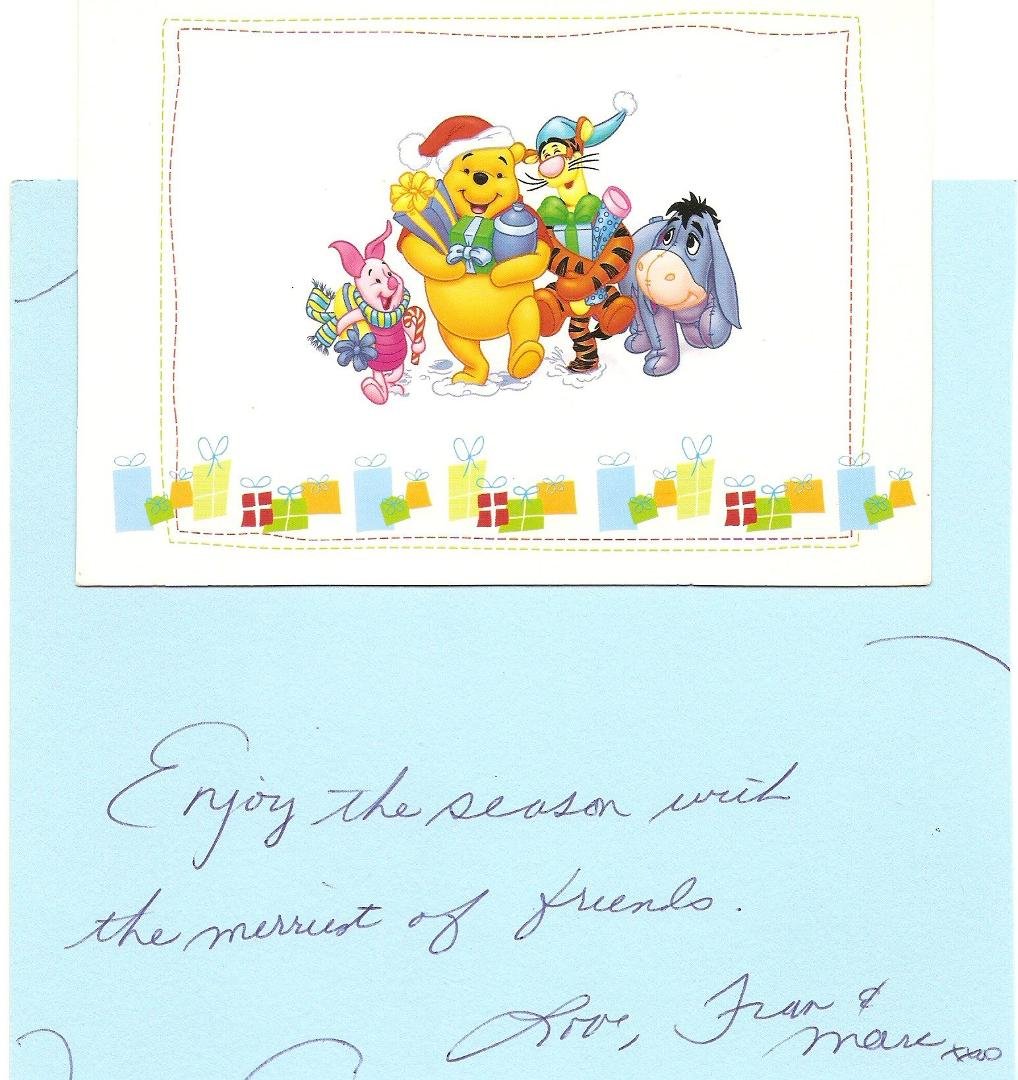 Enjoy the season with
the merriest of friends.
Love, Fran &
Marc xxoo